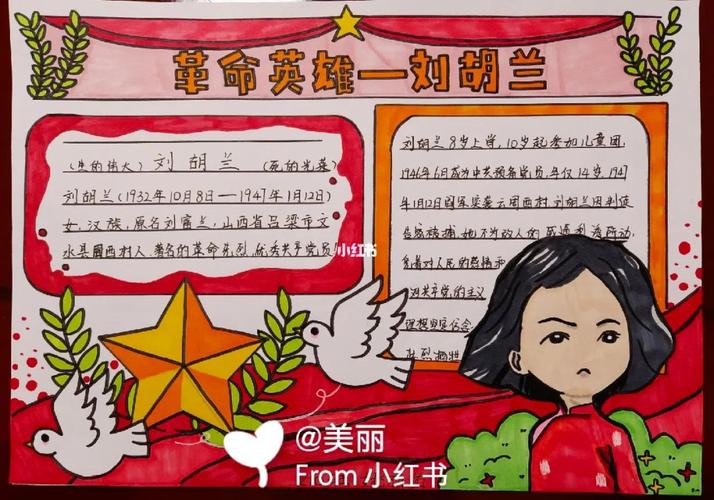 革命英雄—刘胡兰
(生的伟大) 刘胡兰 (死的光荣)
刘胡兰(1932年10月8日—1947年1月12日)
女,汉族,原名刘富兰,山西省吕梁市文
水县周西村人,著名的革命先烈,优秀共产党员
刘胡兰8岁上学,10岁起参加儿童团,
1946年6月成为中共预备党员,年仅14岁,1947
年1月12日国军突袭云周西村,刘胡兰因叛徒
告密被捕,她不为敌人的威逼利诱所动,
着对人民的感情和
对共产党的主义
理想坚定信念
壮烈牺牲
小红书
@美丽
From 小红书